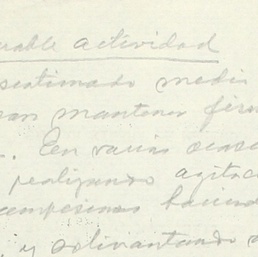 rable actividad
sestimado medi
an mantener fir
. En varias ocas
realizando agitac
campesinas hacien
, y soliviantando